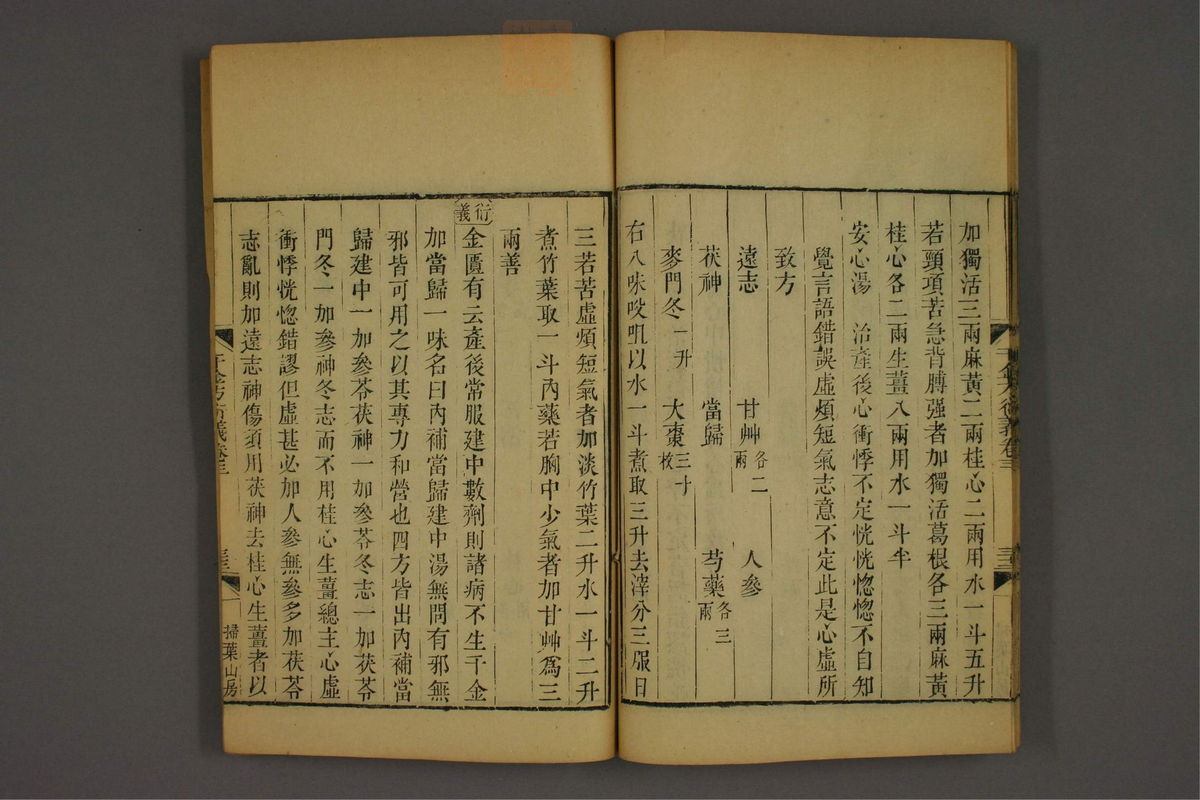 加獨活三兩麻黃二兩桂心二兩用水一斗五升
若頸項苦急背膊强者加獨活葛根各三兩麻黃
桂心各二兩生薑八兩用水一斗半
安心湯 治產後心衝悸不定恍恍惚惚不自知
覺言語錯誤虛煩短氣志意不定此是心虛所
致方
遠志 甘艸各二兩 人參
茯神 當歸 芍藥各三兩
麥門冬一升 大棗三十枚
右八味㕮咀以水一斗煮取三升去滓分三服日
三若苦虛煩短氣者加淡竹葉二升水一斗二升
煮竹葉取一斗內藥若胸中少氣者加甘艸爲三
兩善
衍義
金匱有云產後常服建中數劑則諸病不生千金
加當歸一味名曰內補當歸建中湯無問有邪無
邪皆可用之以其專力和營也四方皆出內補當
歸建中一加參苓茯神一加參苓冬志一加茯苓
門冬一加參神冬志而不用桂心生薑總主心虛
衝悸恍惚錯謬但虛甚必加人參無參多加茯苓
志亂則加遠志神傷須用茯神去桂心生薑者以
千金方衍義卷三
掃葉山房